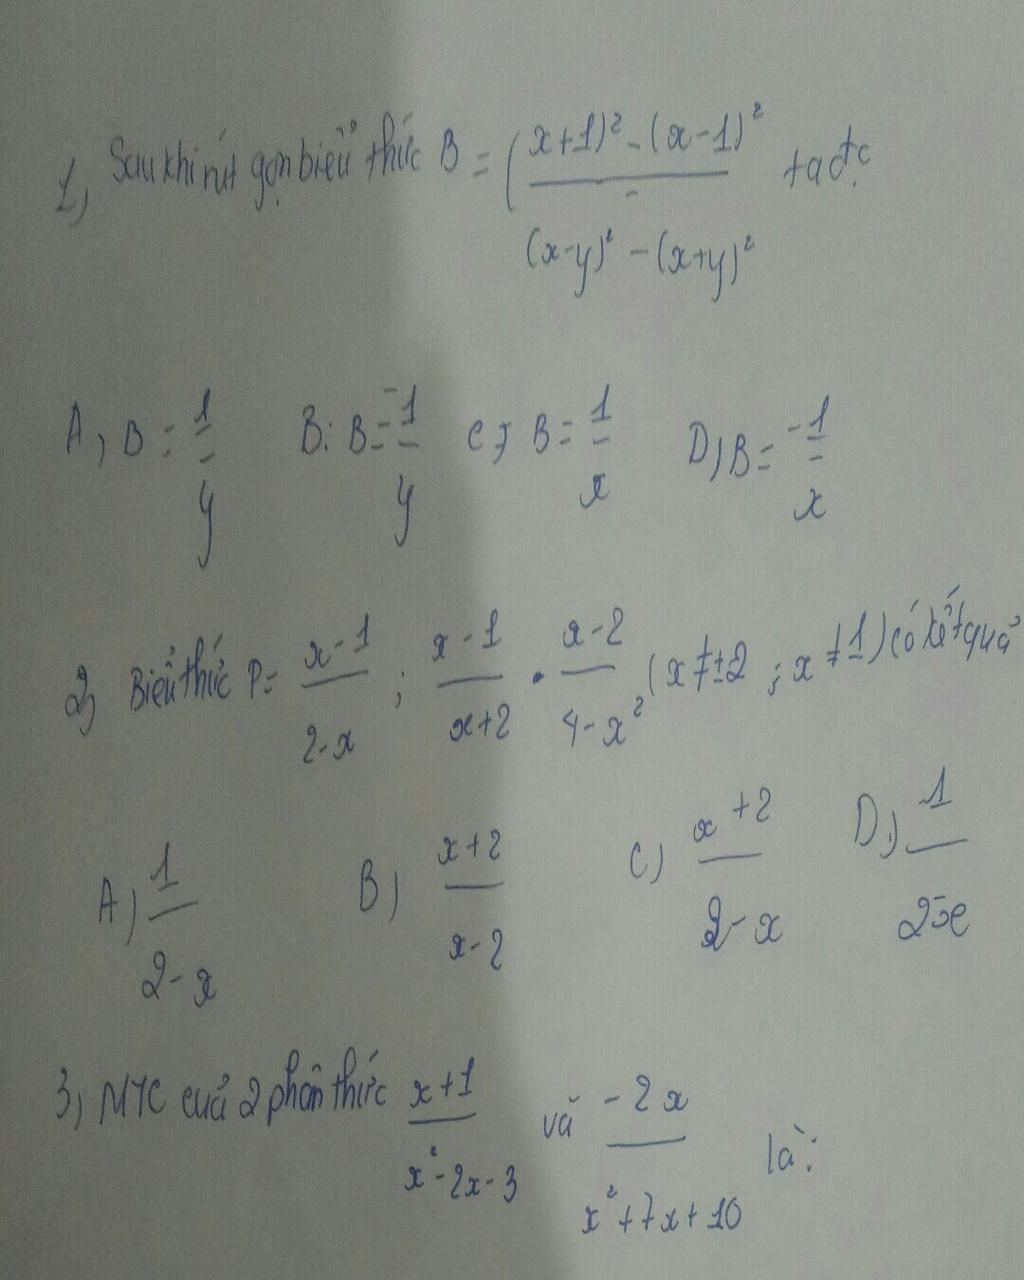 1, Sau khi rút gọn biểu thức B = ((x+1)² - (x-1)² / (x-y)² - (x+y)² ta đc
A, B = 1/y B: B = -1/y C; B = 1/x D, B = -1/x
2, Biểu thức P = x-1/2-x ; x-1/x+2 . x-2/4-x² (x ≠ ±2 ; x ≠ 1) có kết quả
A) 1/2-x B) x+2/x-2 C) x+2/2-x D,) 1/2-x
3, MTC của 2 phân thức x+1/x²-2x-3 và -2x/x²+7x+10 là: